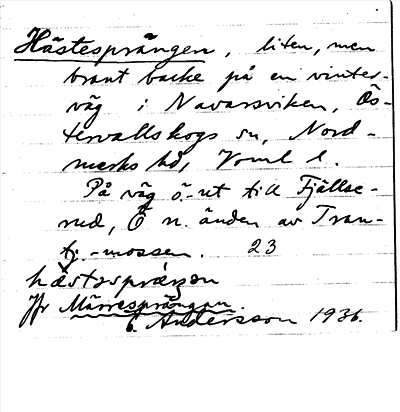 Hästesprängen, liten, men
brant backe på en vinter-
väg i Navarsviken, Ös-
tervallskogs sn, Nord-
marks hd, Vrml l.
På väg ö-ut till Fjällse-
rud, Ö n. änden av Tran-
tj.-mossen. 23
hästəspräŋən
Jfr Märresprängen.
E. Andersson 1936.